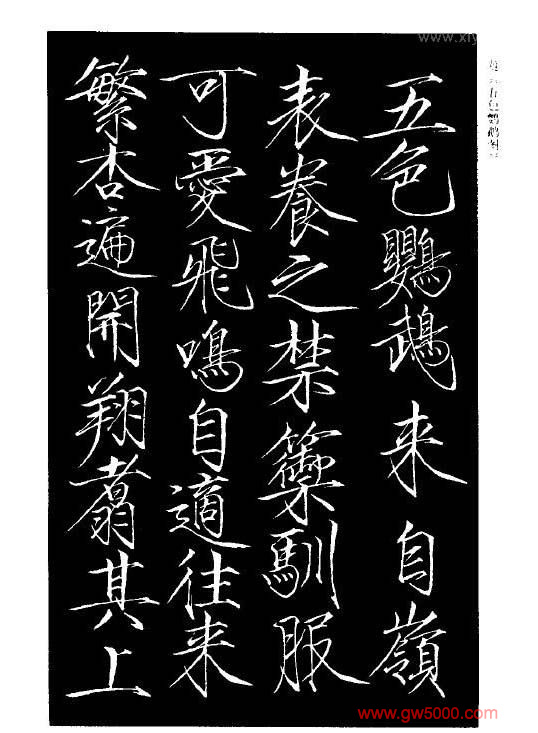 五色鸚鵡来自嶺
表養之禁籞馴服
可愛飛鳴自適往来
繁杏遍開翔翥其上
五色鹦鹉图
www.gw5000.com